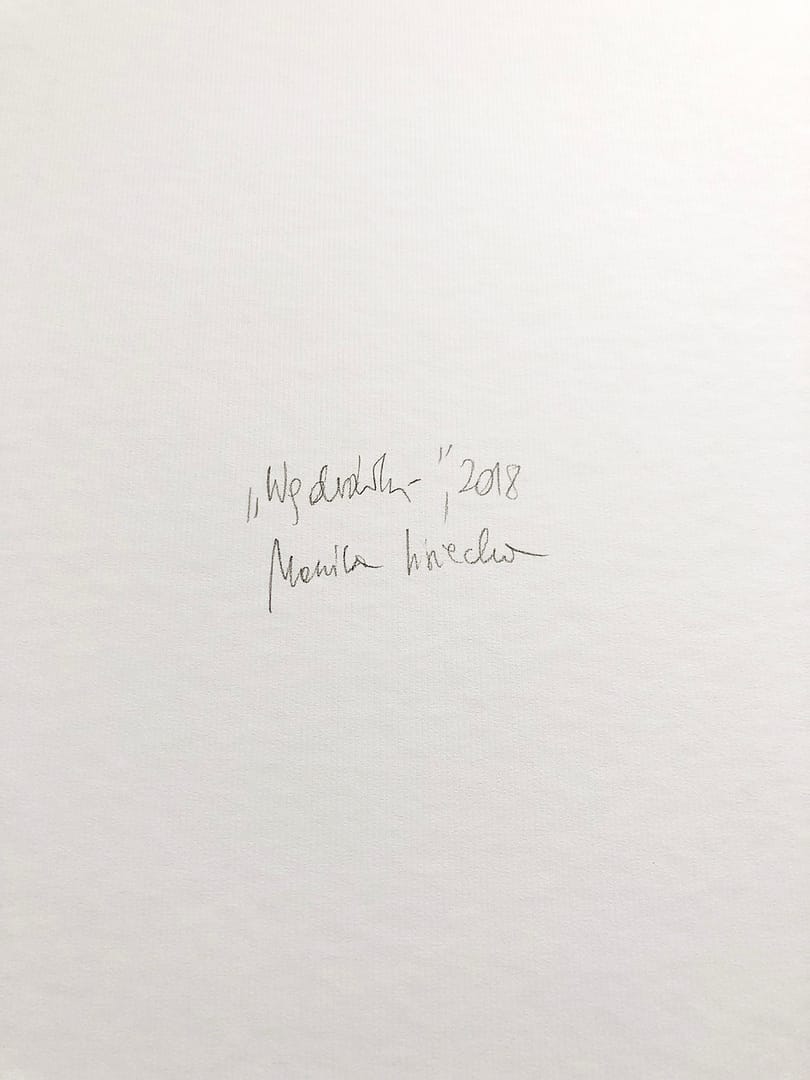 „Wędrówka”, 2018
Monika